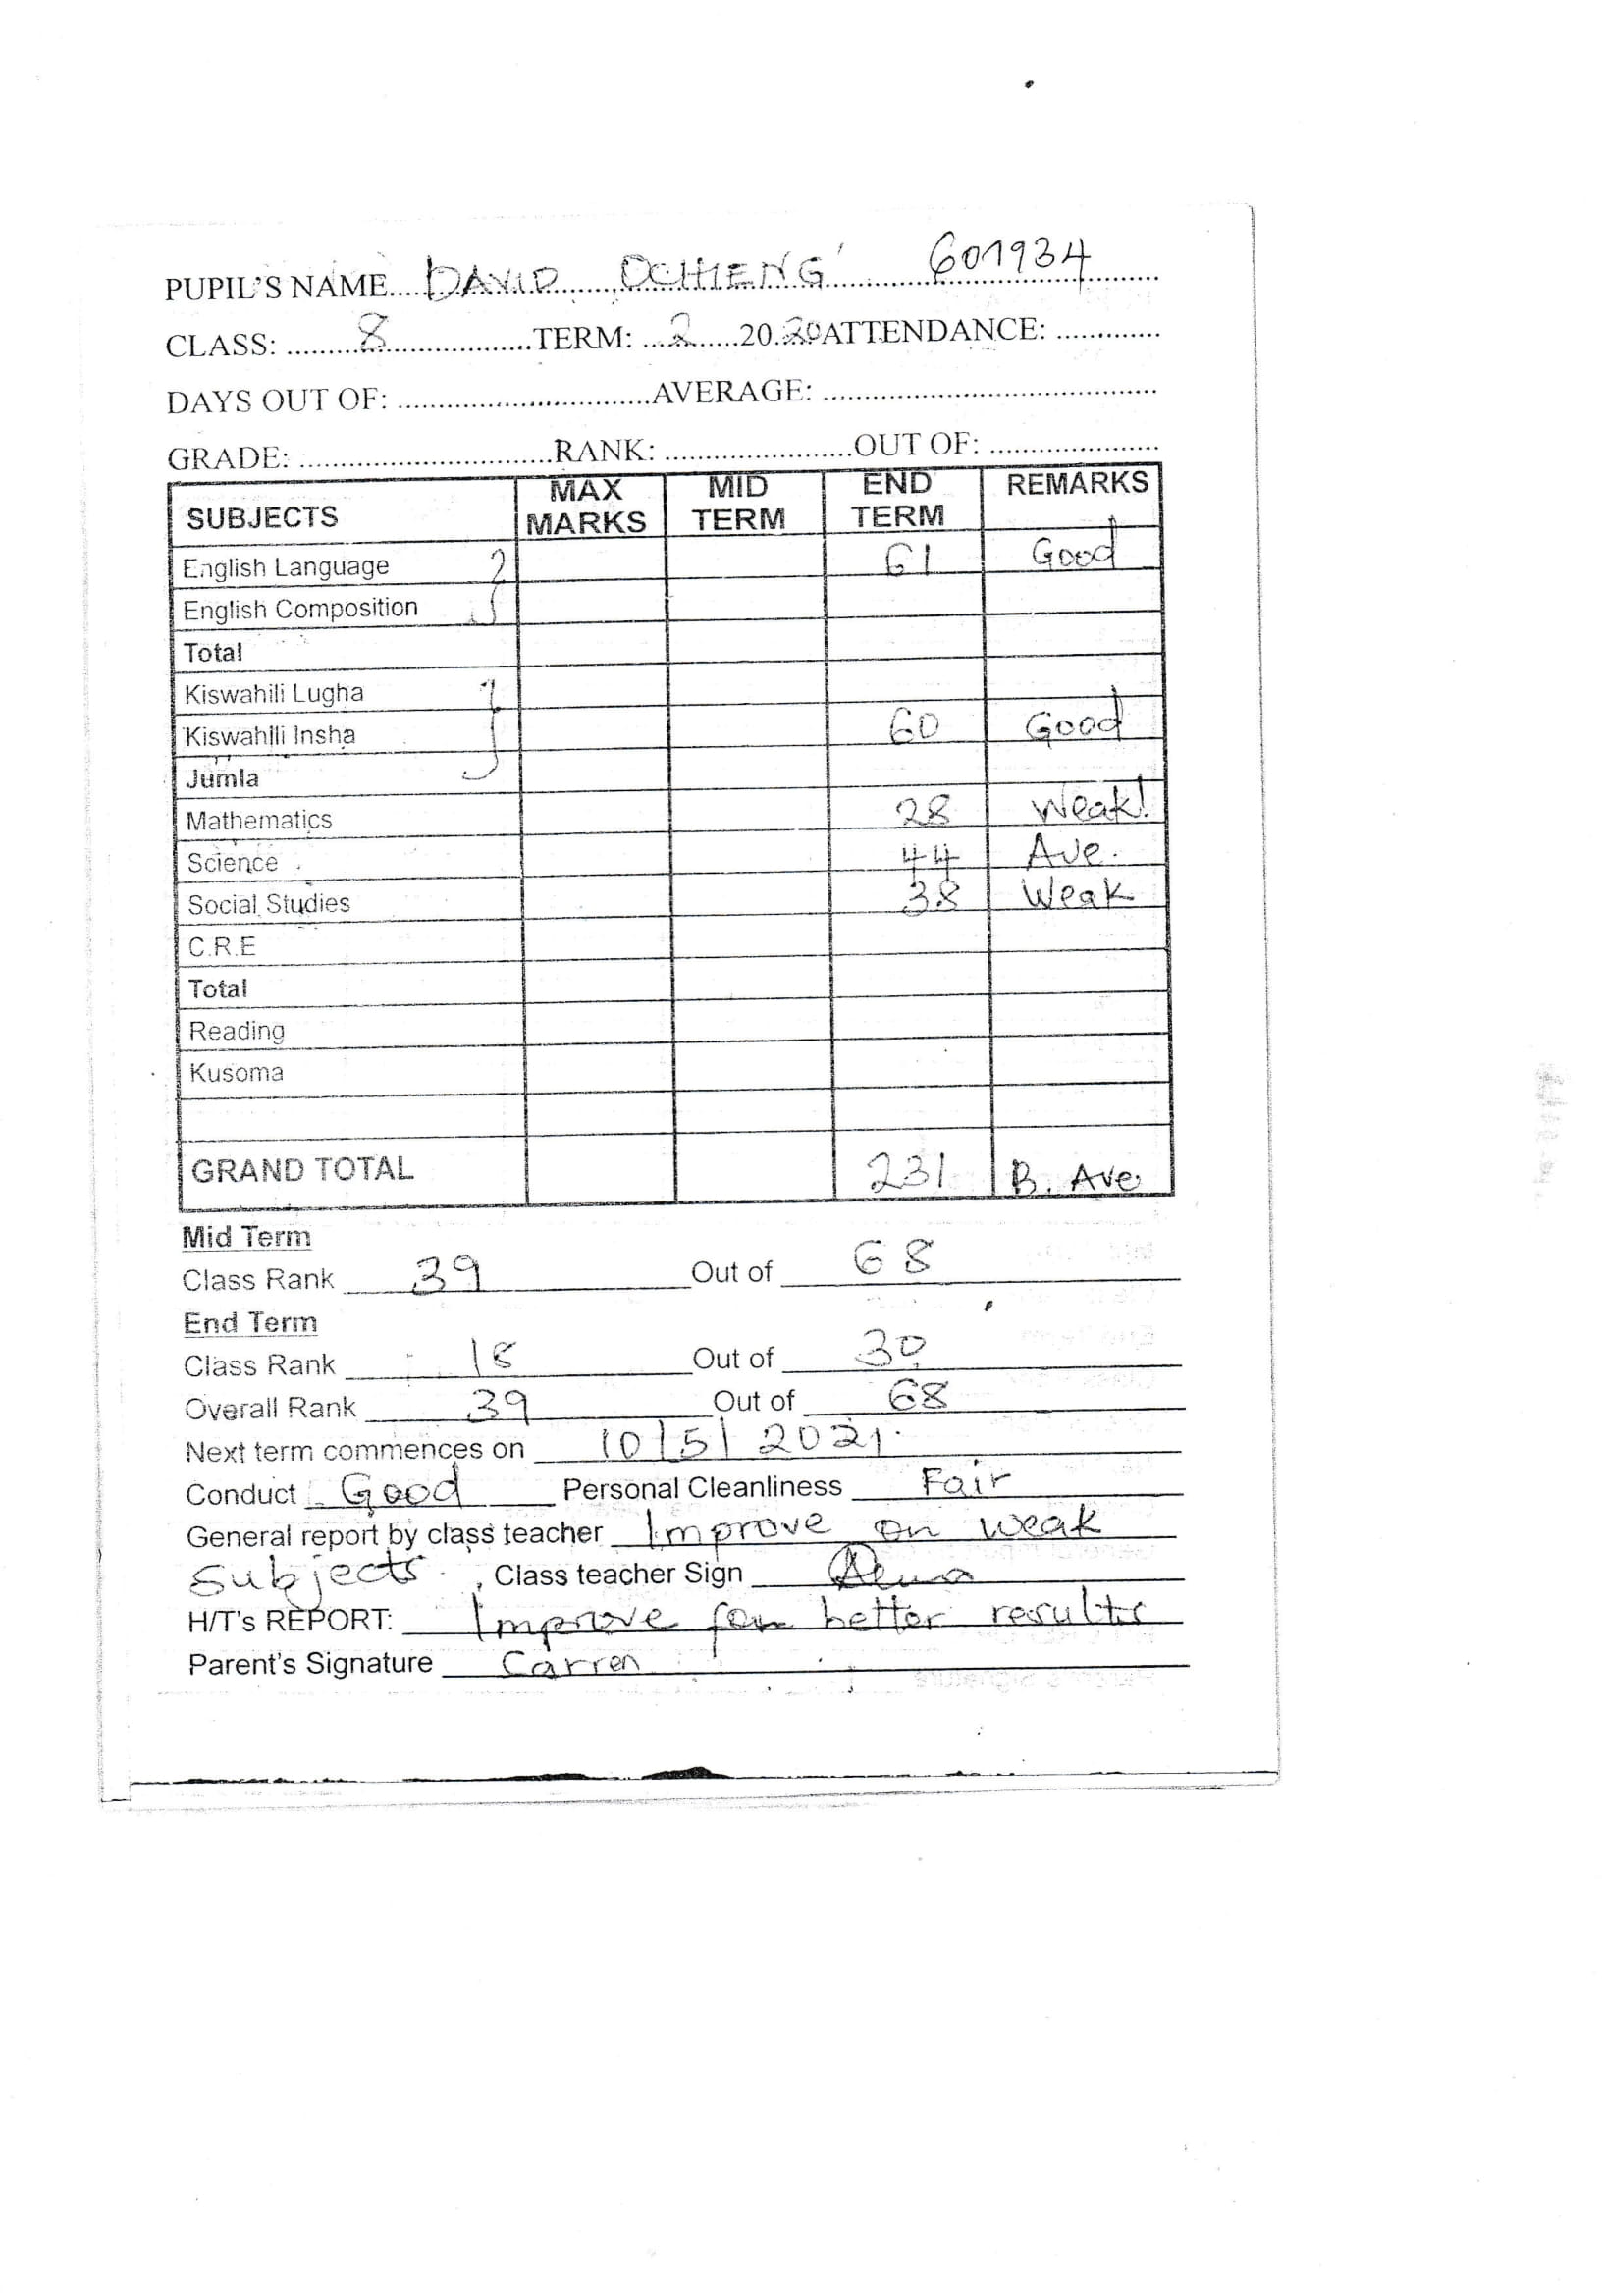 PUPIL'S NAME....DAVID OCHIENG' 601934
CLASS: ....8....TERM: ...2...20.20ATTENDANCE: ............
DAYS OUT OF: ............AVERAGE: ............
GRADE: ............RANK: ............OUT OF: ............
SUBJECTS MAX MARKS MID TERM END TERM REMARKS
English Language 61 Good
English Composition
Total
Kiswahili Lugha
Kiswahili Insha 60 Good
Jumla
Mathematics 28 Weak!
Science 44 Ave.
Social Studies 38 Weak
C.R.E
Total
Reading
Kusoma
GRAND TOTAL 231 B. Ave
Mid Term
Class Rank 39 Out of 68
End Term
Class Rank 18 Out of 30
Overall Rank 39 Out of 68
Next term commences on 10/5/2021.
Conduct Good Personal Cleanliness Fair
General report by class teacher Improve on weak
subjects. Class teacher Sign
H/T's REPORT: Improve for better results
Parent's Signature Carren